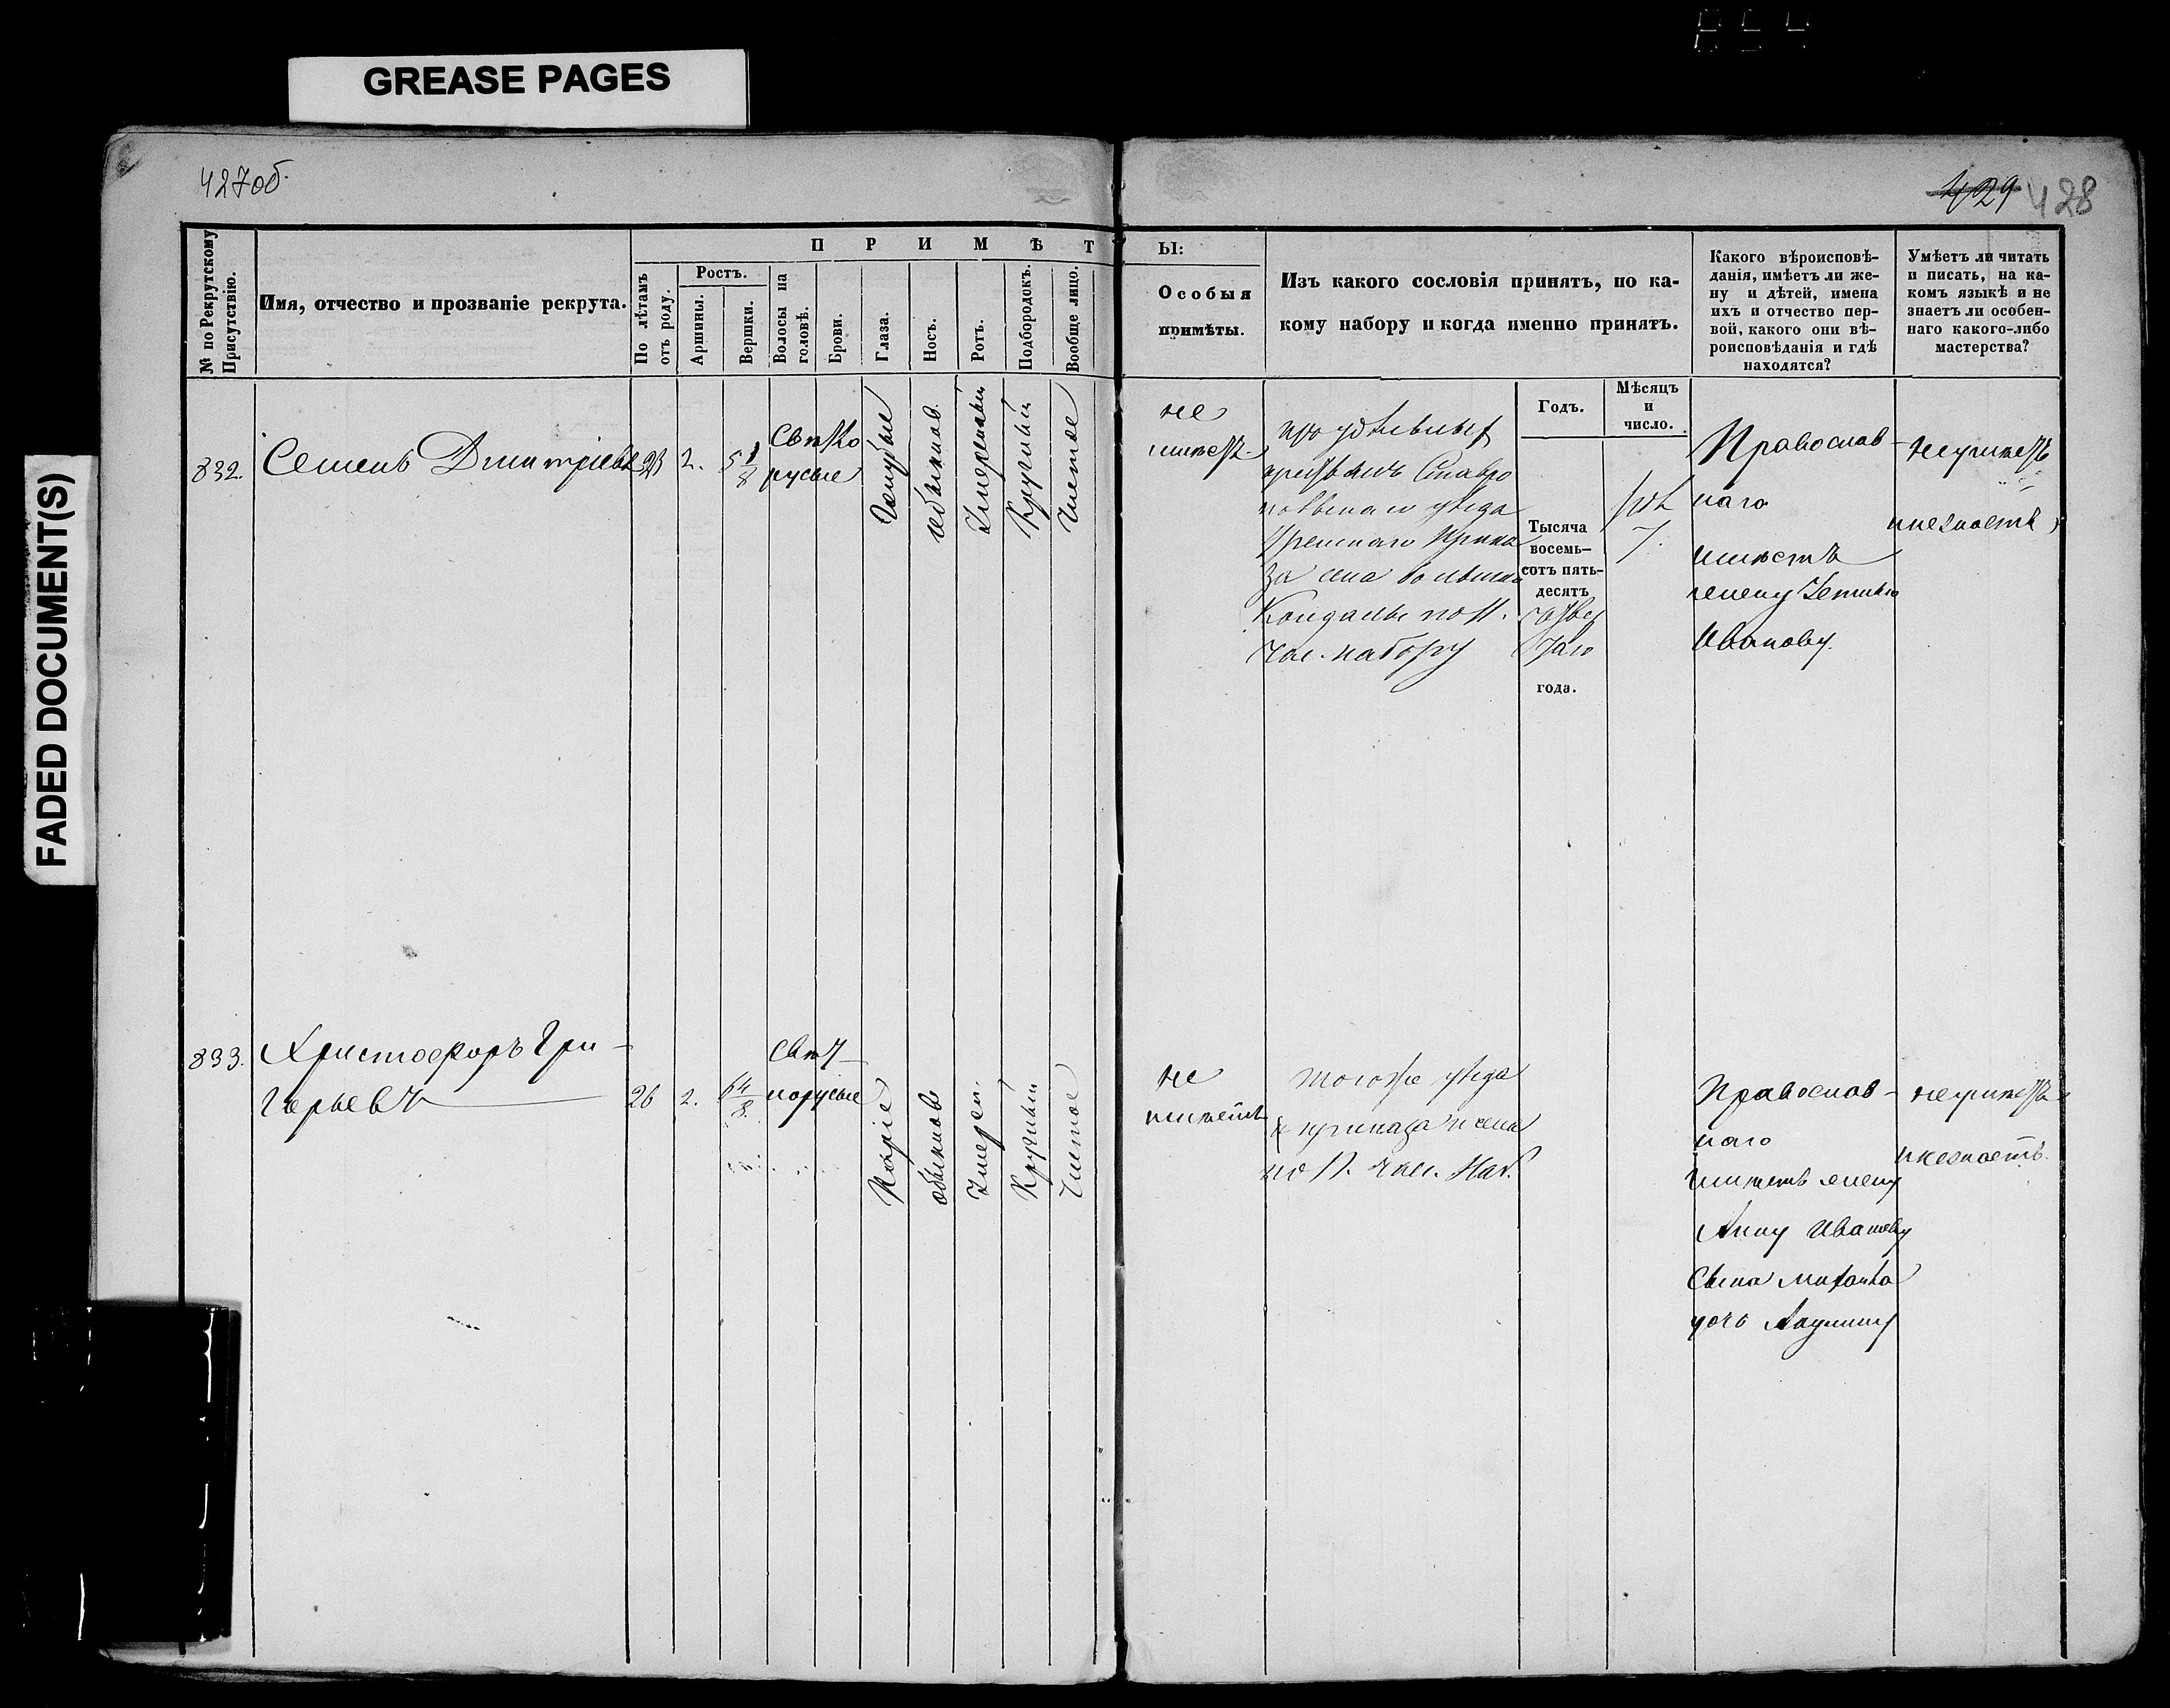 GREASE PAGES
FADED DOCUMENT(S)
427об.
429 428
№ по Рекрутскому
Присутствію.
Имя, отчество и прозваніе рекрута.
ПРИМѢТЫ:
По лѣтамъ
отъ роду.
Ростъ.
Аршины.
Вершки.
Волосы на
головѣ.
Брови.
Глаза.
Носъ.
Ротъ.
Подбородокъ.
Вообще лицо.
Особыя
примѣты.
Изъ какого сословія принятъ, по ка-
кому набору и когда именно принятъ.
Какого вѣроисповѣ-
данія, имѣетъ ли же-
ну и дѣтей, имена
ихъ и отчество пер-
вой, какого они вѣ-
роисповѣданія и гдѣ
находятся?
Умѣетъ ли читать
и писать, на ка-
комъ языкѣ и не
знаетъ ли особен-
наго какого-либо
мастерства?
Годъ.
Мѣсяцъ
и
число.
832.
Семенъ Дмитріевъ
2.
Свѣтло
русые
Голубые
обыкнов.
Умѣренный
Круглый
Чистое
не
имѣетъ.
удѣльныхъ
крестьянъ Ставро
уѣзда
Прика
за села
Кондалы по
час. набору
Тысяча
восемь-
сотъ пять-
десятъ
года.
7.
Православ-
наго
имѣетъ
жену
Иванову.
неумѣетъ
и незнаетъ
833.
Христофоръ Гри-
горьевъ
26
2.
6 4/8.
Свѣт-
лорусые
Каріе
обыкнов
Умѣрен.
Круглый
Чистое
не
имѣетъ
тогоже уѣзда
приказа и села
по Час. Наб.
Православ-
наго
Имѣетъ жену
Анну Иванову
Сына Михаила
дочь Акулину
неумѣетъ
и незнаетъ.